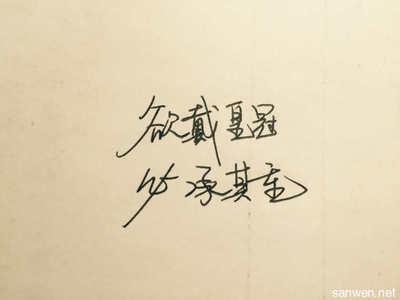 欲戴皇冠
必承其重
sanwen.net